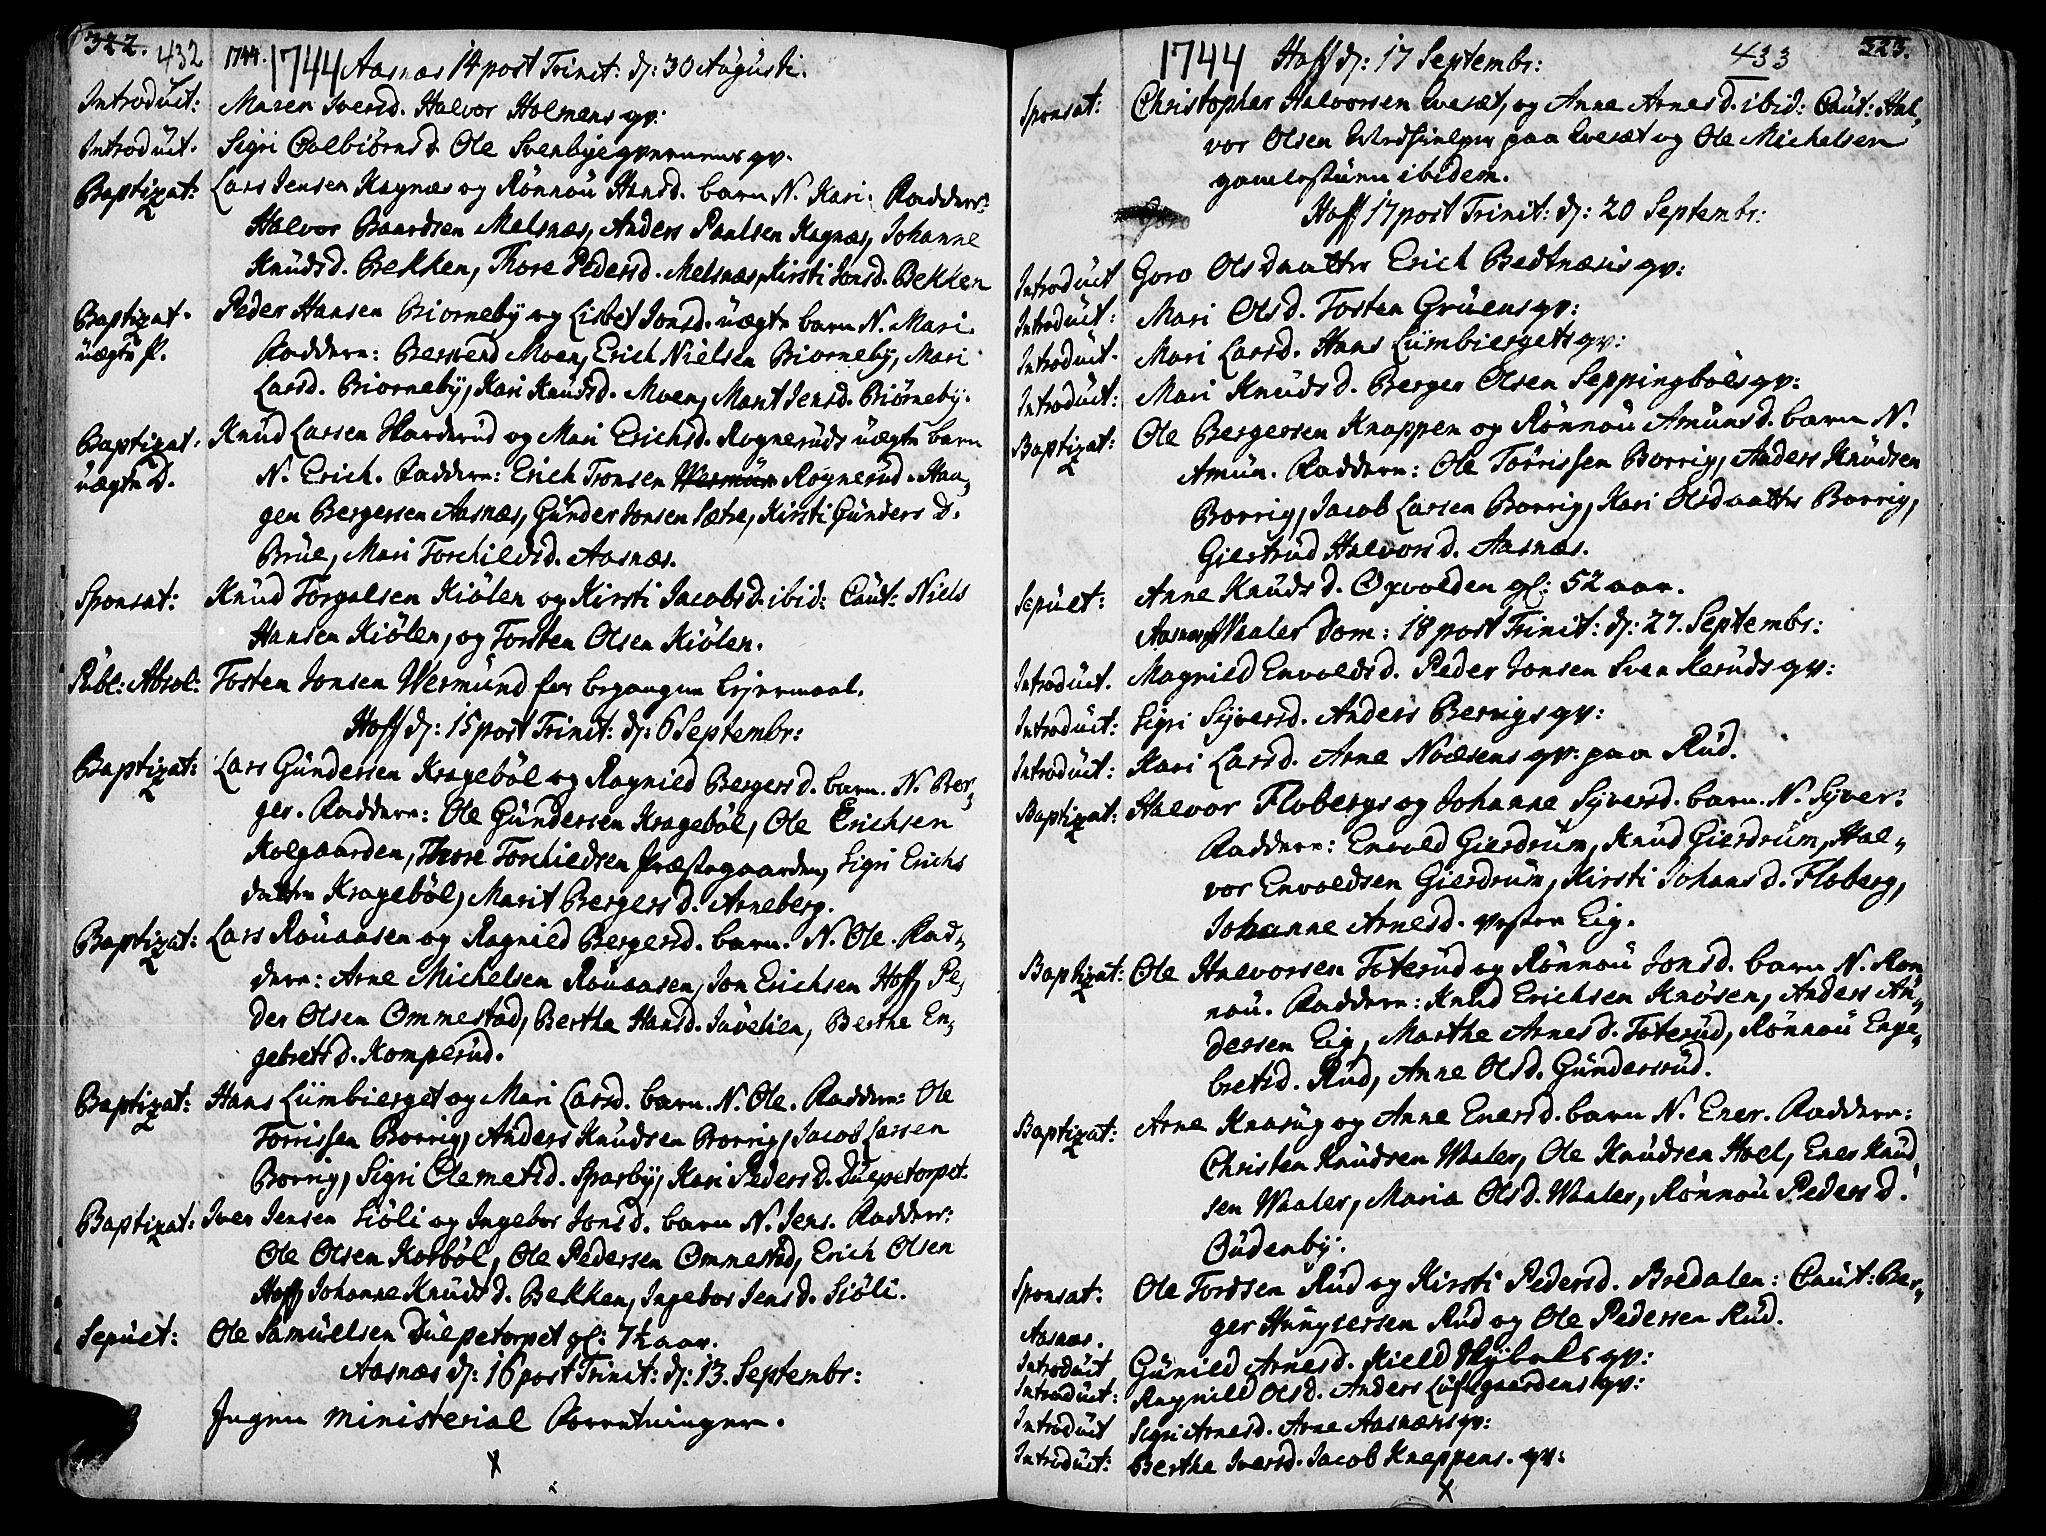 322. 432 1744. 1744 Aasnæs 14 post Trinit: d: 30 Augusti.
Introduct: Maren Iversd. Halvor Holmens qv:
Introduct. Sigri Colbiörnsd. Ole Svenbye qv.
Baptizat: Lars Jensen Kagnæs og Rönnou Hansd. barn N. Kari. Faddere:
Halvor Baardsen Melsnæs, Anders Paulsen Kagnæs, Johanne
Knudsd. Bekken, Thore Pedersd. Melsnæs, Kirsti Jonsd. Bekken
Baptizat. Peder Hansen Biorneby og Lisbet Jonsd. uægte barn N. Mari.
uægte P. Faddere: Berwend Moen, Erich Nielsen Biorneby, Mari
Larsd. Biorneby, Kari Knudsd. Moen, Marit Jensd. Biörneby.
Baptizat. Knud Larsen Harderud og Mari Erichsd. Rogneruds uægte barn
uægte D. N. Erich. Faddere: Erich Tronsen Wermun Rognerud. Hau,
gen Bergersen Aasnæs, Gunder Jonsen Sætre, Kirsti Gunders D.
Brue, Mari Torchildsd. Aasnæs.
Sponsat: Knud Torgalsen Kiölen og Kirsti Jacobsd. ibid: Caut: Niels
Hansen Kiölen, og Torsten Olsen Kiölen.
Publ: Absol: Tosten Jonsen Wermund for begangne leiermaal.
Hoff d: 15 post Trinit: d: 6 Septembr:
Baptizat: Lars Gundersen Krageböl og Ragnild Bergersd. barn. N. Ber,
ger. Faddere: Ole Gundersen Krageböl, Ole Erichsen
Kolgaarden, Thore Torchildsen Præstegaarden, Sigri Erichs
datter Krageböl, Marit Bergersd. Arneberg.
Baptizat: Lars Rouaasen og Ragnild Bergersd. barn. N. Ole. Fad,
dere: Arne Michelsen Rouaasen, Jon Erichsen Hoff, Pe,
der Olsen Ommestad, Berthe Hansd. Julien, Berthe En,
gebretsd. Komperud.
Baptizat: Hans Lümbierget og Mari Larsd. barn. N. Ole. Faddere: Ole
Torrissen Borrig, Anders Knudsen Borrig, Jacob Larsen
Borrig, Sigri Clemetsd. Sparby, Kari Pedersd. Dülpetorpet.
Baptizat: Iver Jensen Siöli og Ingebor Jonsd. barn N. Jens. Faddere:
Ole Olsen Korböl, Ole Pedersen Ommestad, Erich Olsen
Hoff, Johanne Knudsd. Bekken, Ingebor Jensd. Siöli.
Sepult: Ole Samuelsen Dülpetorpet gl: 7½ aar.
Aasnæs d: 16 post Trinit: d: 13. Septembr:
Ingen ministerial Forretninger.
1744 Hoff d: 17 Septembr: 433 323.
Sponsat: Christopher Halvorsen Qvesæt, og Anne Arnesd. ibid: Caut: Hal,
vor Olsen paa Qvesæt og Ole Michelsen
gamlestuen ibidem.
Hoff 17 post Trinit: d: 20 Septembr:
Introduct Goro Olsdaatter Erich Bedtnæsis qv:
Introduct: Mari Olsd. Tosten Gruens qv:
Introduct. Mari Larsd. Hans Lümbiergets qv:
Introduct: Mari Knudsd. Berger Olsen Seppingböls qv:
Baptizat: Ole Bergersen Knappen og Rönnou Amunsd. barn N.
Amun. Faddere: Ole Torrissen Borrig, Anders Knudsen
Borrig, Jacob Larsen Borrig, Kari Olsdaatter Borrig,
Giertrud Halvorsd. Aasnæs.
Sepult: Anne Knudsd. Opvolden gl: 52 aar.
Aasnæs og Waaler Dom: 18 post Trinit: d: 27. Septembr:
Introduct. Magnild Envoldsd. Peder Jonsen Svenkeruds qv:
Introduct: Sigri Syversd. Anders Berrigs qv:
Introduct: Kari Larsd. Arne Noæsens qv: paa Rud.
Baptizat: Halvor Flobergs og Johanne Syversd. barn. N. Syver:
Faddere: Envold Gierdrum, Knud Gierdrum, Hal,
vor Envoldsen Gierdrum, Kirsti Johansd. Floberg,
Johanne Arnesd. vesten Eig.
Baptizat: Ole Halvorsen Toterud og Rönnou Jonsd. barn N. Rön,
nou. Faddere: Knud Erichsen Knösen, Anders An,
dersen Eig, Marthe Arnesd. Toterud, Rönnou Enge,
bretsd. Rud, Anne Olsd. Gündersrud.
Baptizat: Arne Knasug og Anne Enersd. barn N. Ener. Faddere:
Christen Knudsen Waaler, Ole Knudsen Hoel, Ener Knud,
sen Waaler, Maria Olsd. Waaler, Rönnou Pedersd.
Oudenby.
Sponsat: Ole Tordsen Rud og Kirsti Pedersd. Bredalen: Caut: Ber,
ger Hungersen Rud og Ole Pedersen Rud.
Aasnæs.
Introduct Gunild Arnesd. Kield Hybols qv:
Introduct: Ragnild Olsd. Anders Lüftgaardens qv:
Introduct Sigri Arnesd. Arne Aasnæsis qv:
Introduct: Berthe Iversd. Jacob Kneppens. qv: